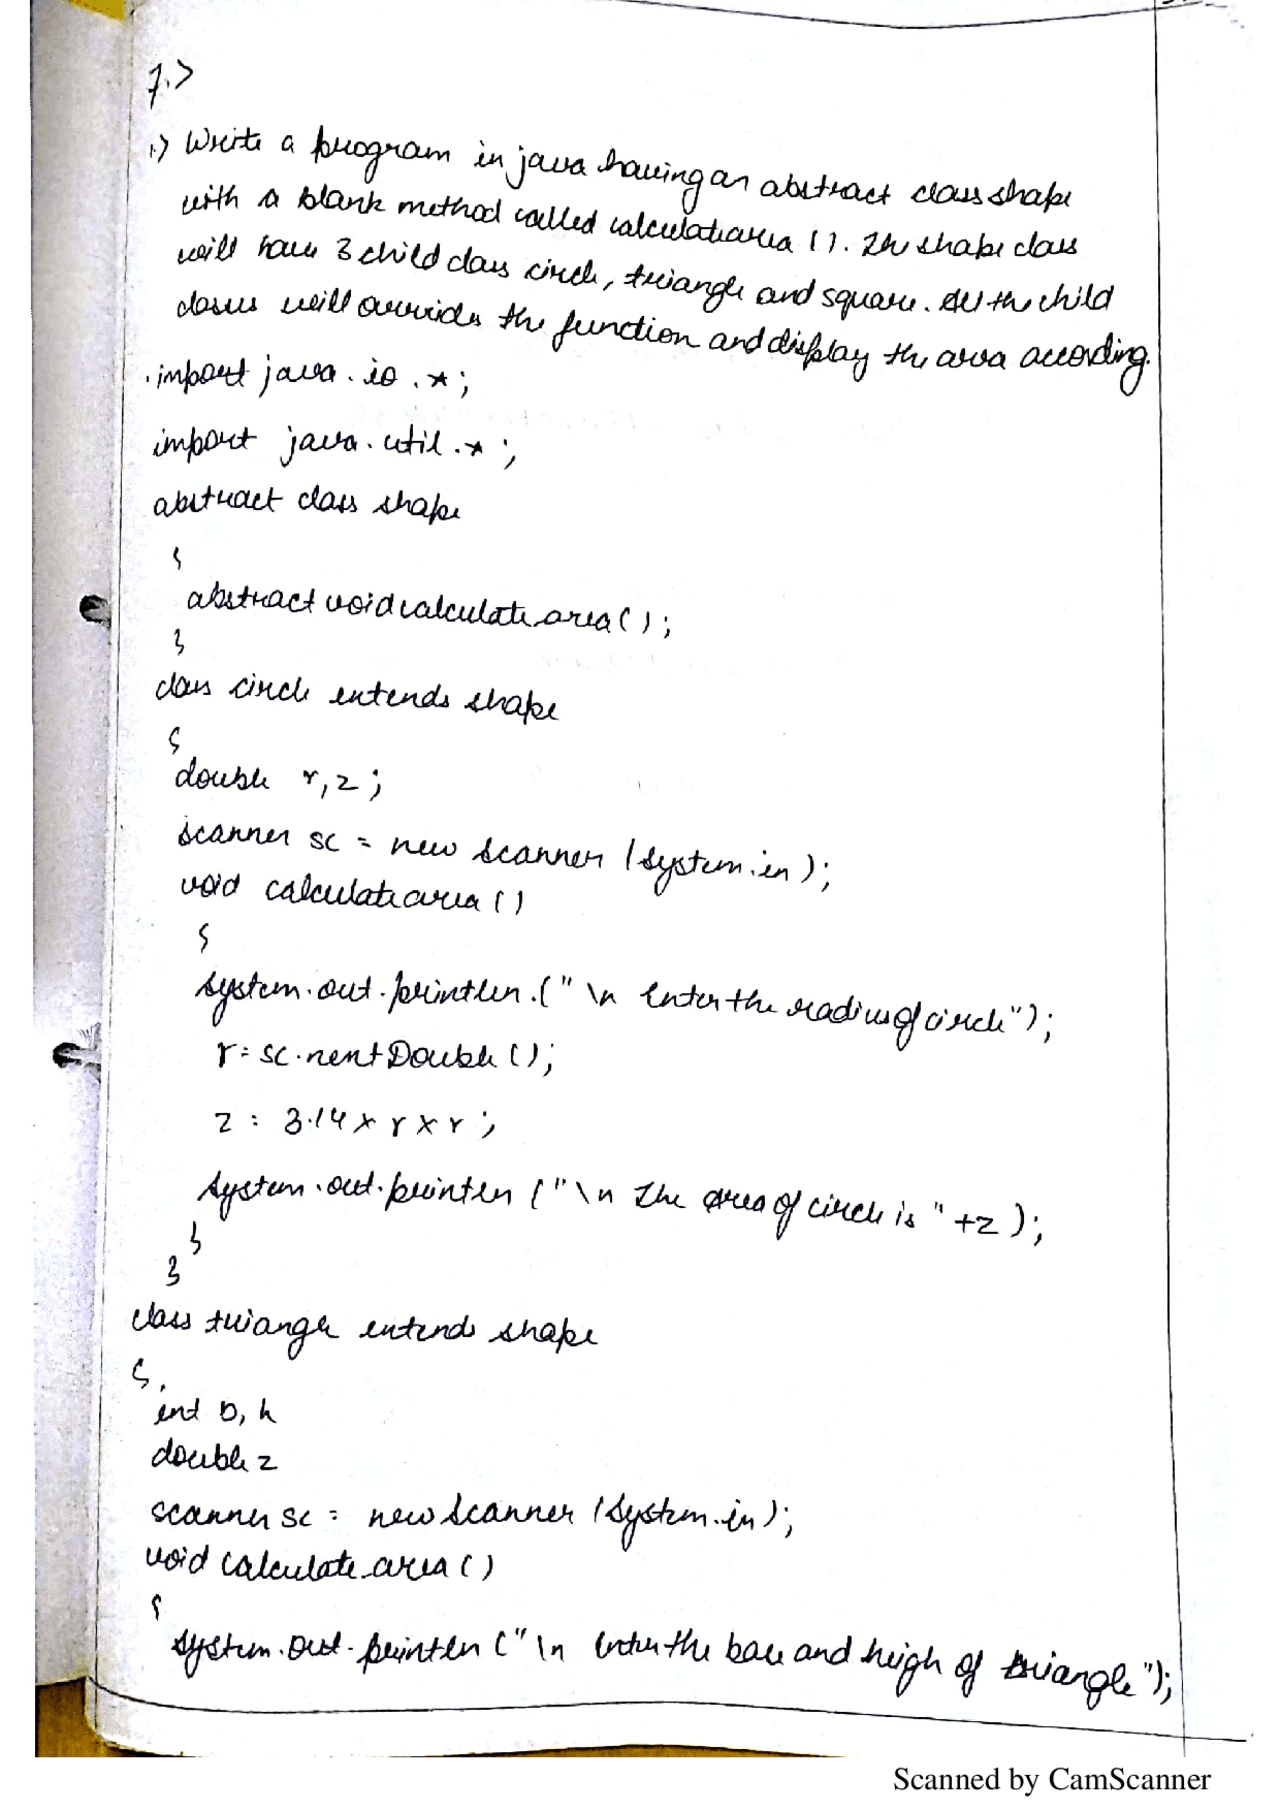 7.>
1.) Write a program in java having an abstract class shape
with a blank method called calculatearea (). The shape class
will have 3 child class circle, triangle and square. All the child
classes will overrides the function and display the area accoding.
import java.io.*;
import java.util.*;
abstract class shape
{
abstract void calculate_area();
}
class circle extends shape
{
double r,z;
scanner sc = new scanner (system.in);
void calculatearea ()
{
system.out.println.("\n Enter the radius of circle");
r=sc.nextDouble();
z = 3.14 x r x r;
system.out.println ("\n The area of circle is "+z);
}
}
class triangle extends shape
{
int b, h
double z
scanner sc = new scanner (system.in);
void calculate_area()
{
system.out.println ("\n Enter the base and heigh of triangle");
Scanned by CamScanner